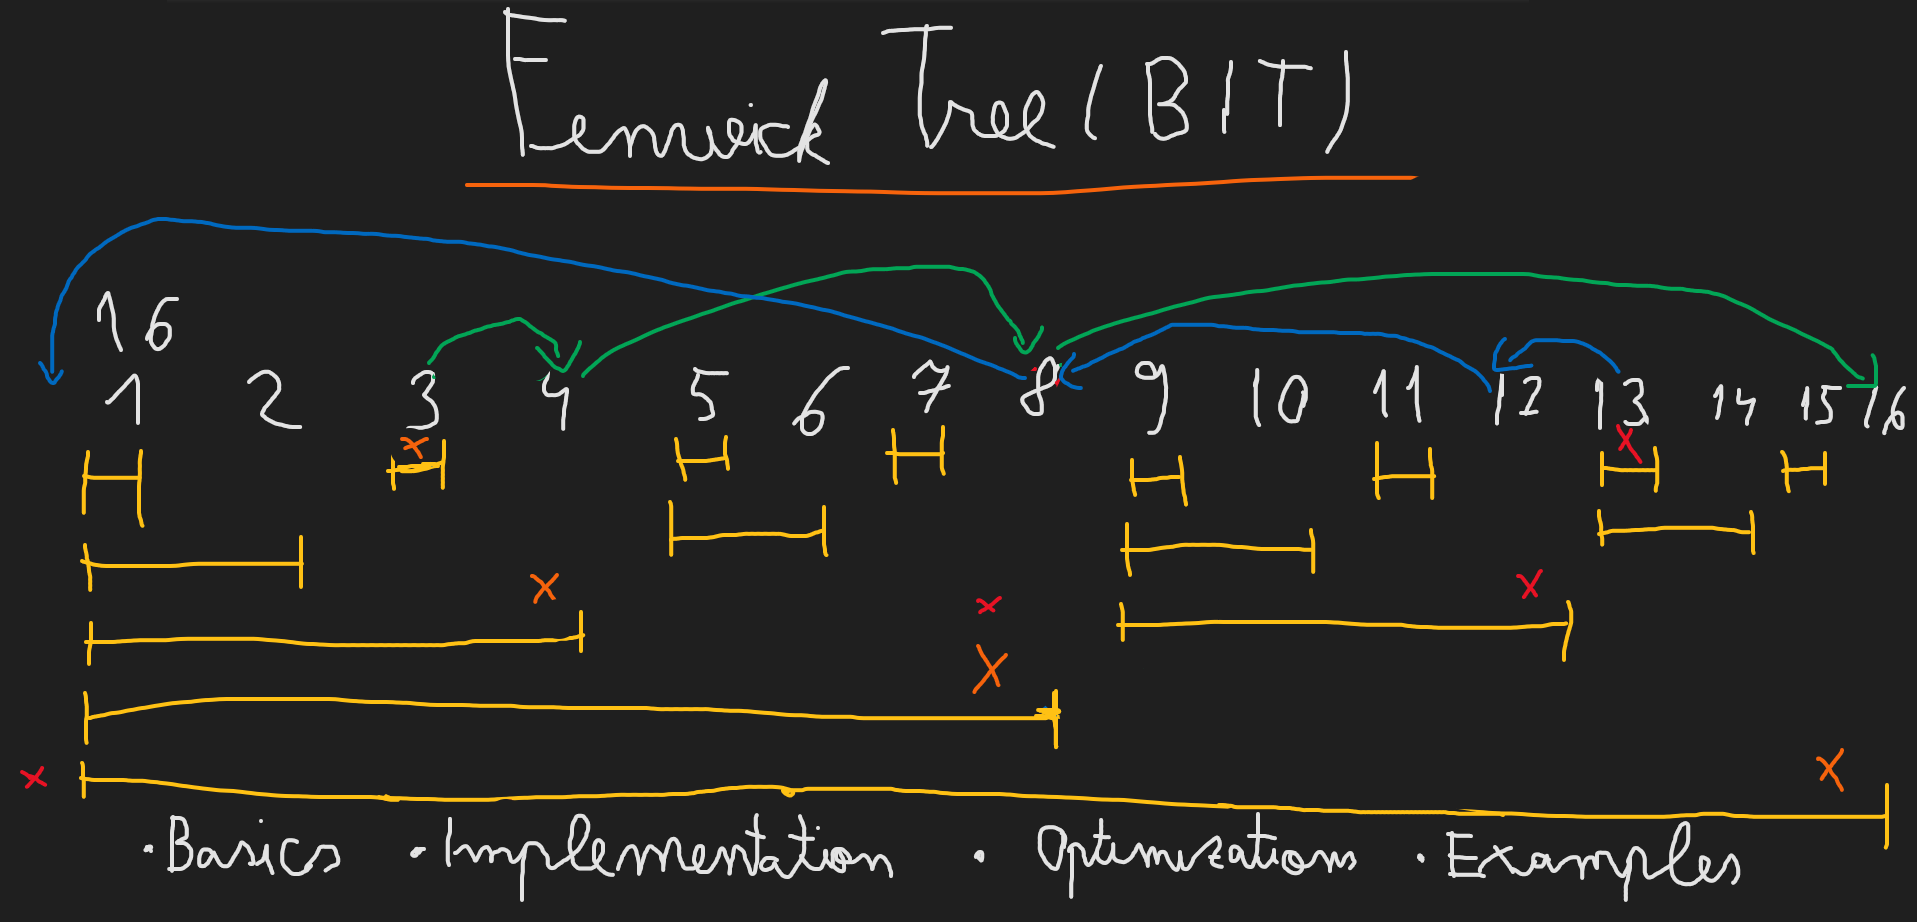 Fenwick Tree (BIT)
16
1 2 3 4 5 6 7 8 9 10 11 12 13 14 15 16
• Basics • Implementation • Optimizations • Examples